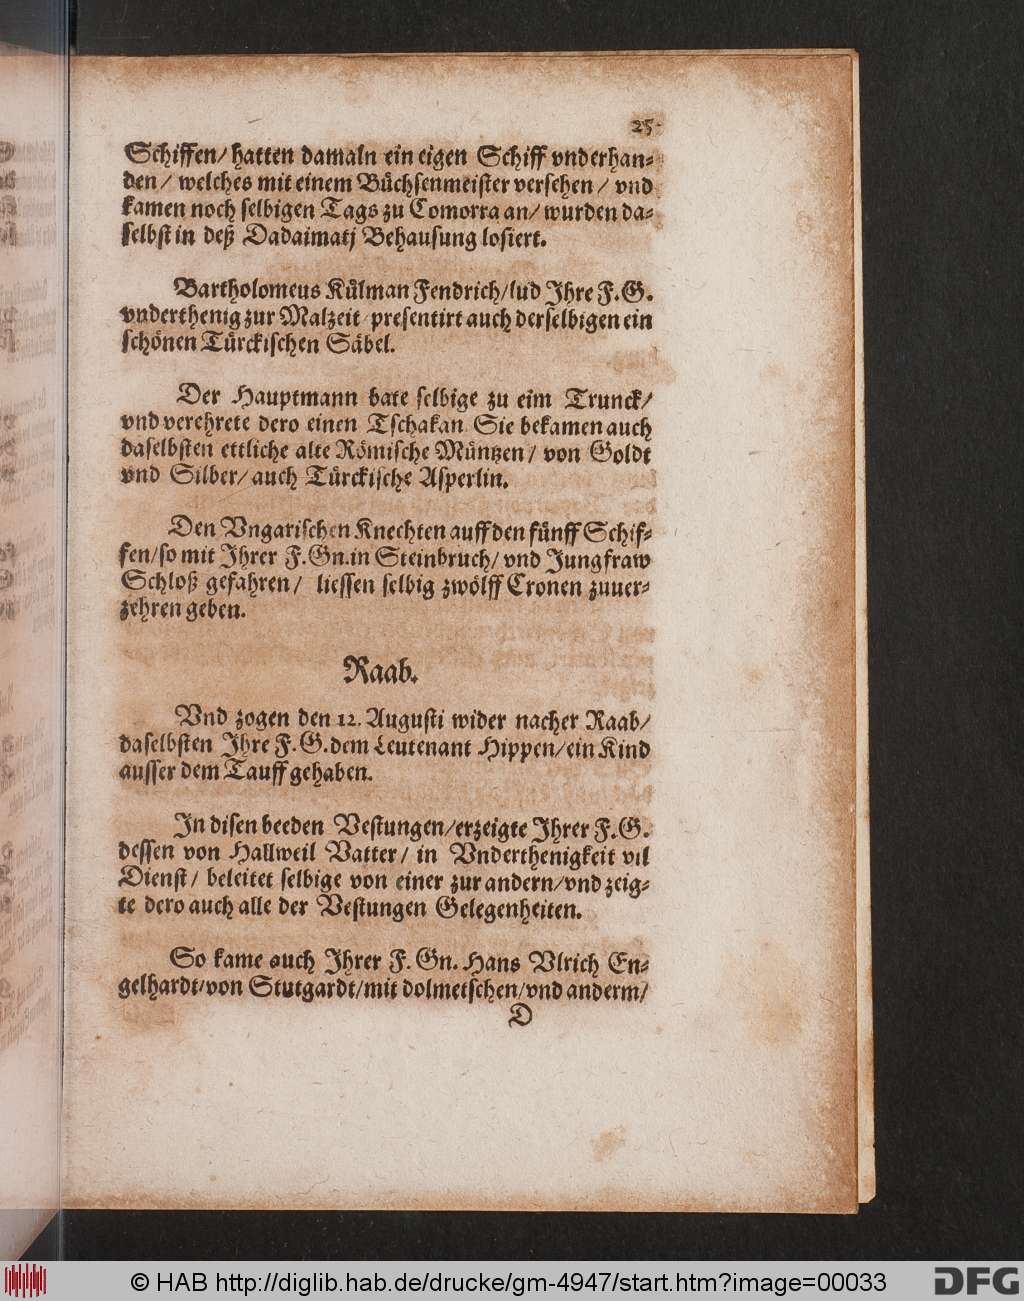 25.
Schiffen/ hatten damaln ein eigen Schiff vnderhan-
den/ welches mit einem Büchsenmeister versehen/ vnd
kamen noch selbigen Tags zu Comorra an/ wurden da-
selbst in deß Dadaimatj Behausung losiert.
Bartholomeus Külman Fendrich/ lud Ihre F.G.
vnderthenig zur Malzeit/ presentirt auch derselbigen ein
schönen Türckischen Säbel.
Der Hauptmann bate selbige zu eim Trunck/
vnd verehrete dero einen Tschakan. Sie bekamen auch
daselbsten ettliche alte Römische Müntzen/ von Goldt
vnd Silber/ auch Türckische Asperlin.
Den Vngarischen Knechten auff den fünff Schif-
fen/ so mit Ihrer F.Gn. in Steinbruch/ vnd Jungfraw
Schloß gefahren/ liessen selbig zwölff Cronen zuuer-
zehren geben.
Raab.
Vnd zogen den 12. Augusti wider nacher Raab/
daselbsten Ihre F.G. dem Leutenant Hippen/ ein Kind
ausser dem Tauff gehaben.
In disen beeden Vestungen/ erzeigte Ihrer F.G.
dessen von Hallweil Vatter/ in Vnderthenigkeit vil
Dienst/ beleitet selbige von einer zur andern/ vnd zeig-
te dero auch alle der Vestungen Gelegenheiten.
So kame auch Ihrer F. Gn. Hans Vlrich En-
gelhardt/ von Stutgardt/ mit dolmetschen/ vnd anderm/
D
© HAB http://diglib.hab.de/drucke/gm-4947/start.htm?image=00033
DFG